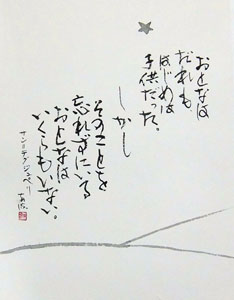 おとなは
だれも
はじめは
子供だった。
しかし
そのことを
忘れずにいる
おとなは
いくらもいない。
サン=テグジュペリ